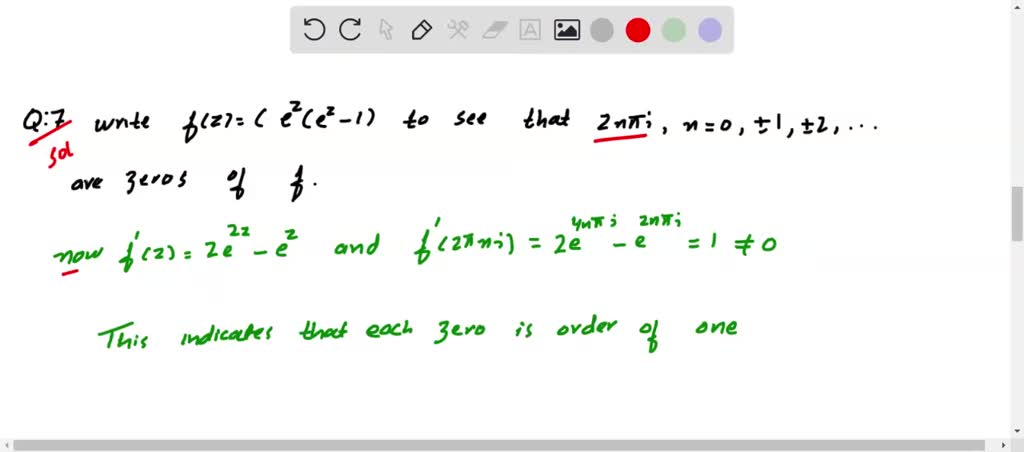 Q:7 write f(z)=( e^z(e^z-1) to see that 2nπi, n=0, ±1, ±2, ...
sol
are zeros of f.
now f'(z) = 2e^{2z} - e^z and f'(2πni) = 2e^{4nπi} - e^{2nπi} = 1 ≠ 0
This indicates that each zero is order of one